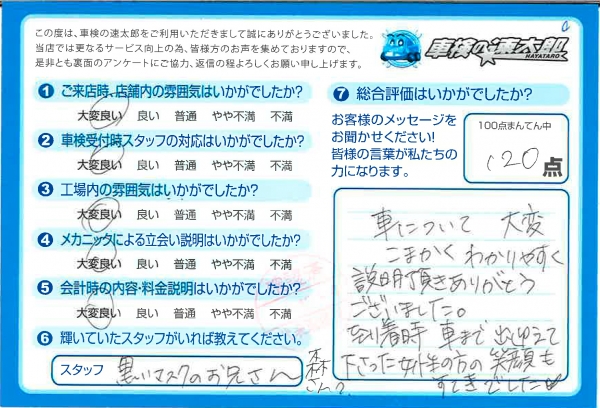 この度は、車検の速太郎をご利用いただきまして誠にありがとうございました。
当店では更なるサービス向上の為、皆様方のお声を集めておりますので、
是非とも裏面のアンケートにご協力、返信の程よろしくお願い申し上げます。
車検の速太郎
HAYATARO
1 ご来店時、店舗内の雰囲気はいかがでしたか?
大変良い 良い 普通 やや不満 不満
2 車検受付時スタッフの対応はいかがでしたか?
大変良い 良い 普通 やや不満 不満
3 工場内の雰囲気はいかがでしたか?
大変良い 良い 普通 やや不満 不満
4 メカニックによる立会い説明はいかがでしたか?
大変良い 良い 普通 やや不満 不満
5 会計時の内容・料金説明はいかがでしたか?
大変良い 良い 普通 やや不満 不満
6 輝いていたスタッフがいれば教えてください。
スタッフ 黒いマスクのお兄さん 森さん?
7 総合評価はいかがでしたか?
お客様のメッセージを
お聞かせください!
皆様の言葉が私たちの
力になります。
100点まんてん中
120点
車について 大変
こまかく わかりやすく
説明頂きありがとう
ございました。
到着時 車まで 出迎えて
下さった女性の方の 笑顔も
すてきでした